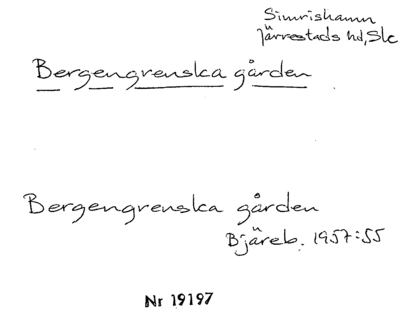 Simrishamn
Järrestads hd, Sk
Bergengrenska gården
Bergengrenska gården
Bjäreb. 1957:55
Nr 19197